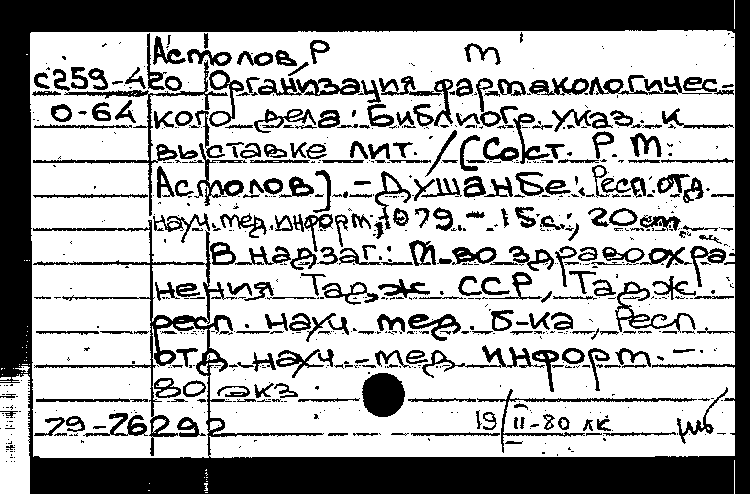 Астолов, Р М
С259-420 Организация фармакологичес-
О-64 кого дела: Библиогр. указ. к
выставке лит. / [Сост. Р. М.
Астолов]. - Душанбе: Респ. отд.
науч. мед. информ, 1979. - 15 с.; 20 cm.
В надзаг.: М-во здравоохра-
нения Тадж. ССР, Тадж.
респ. науч. мед. б-ка, Респ.
отд. науч.-мед. информ. -
80 экз.
79-76292 19/II-80 ЛК